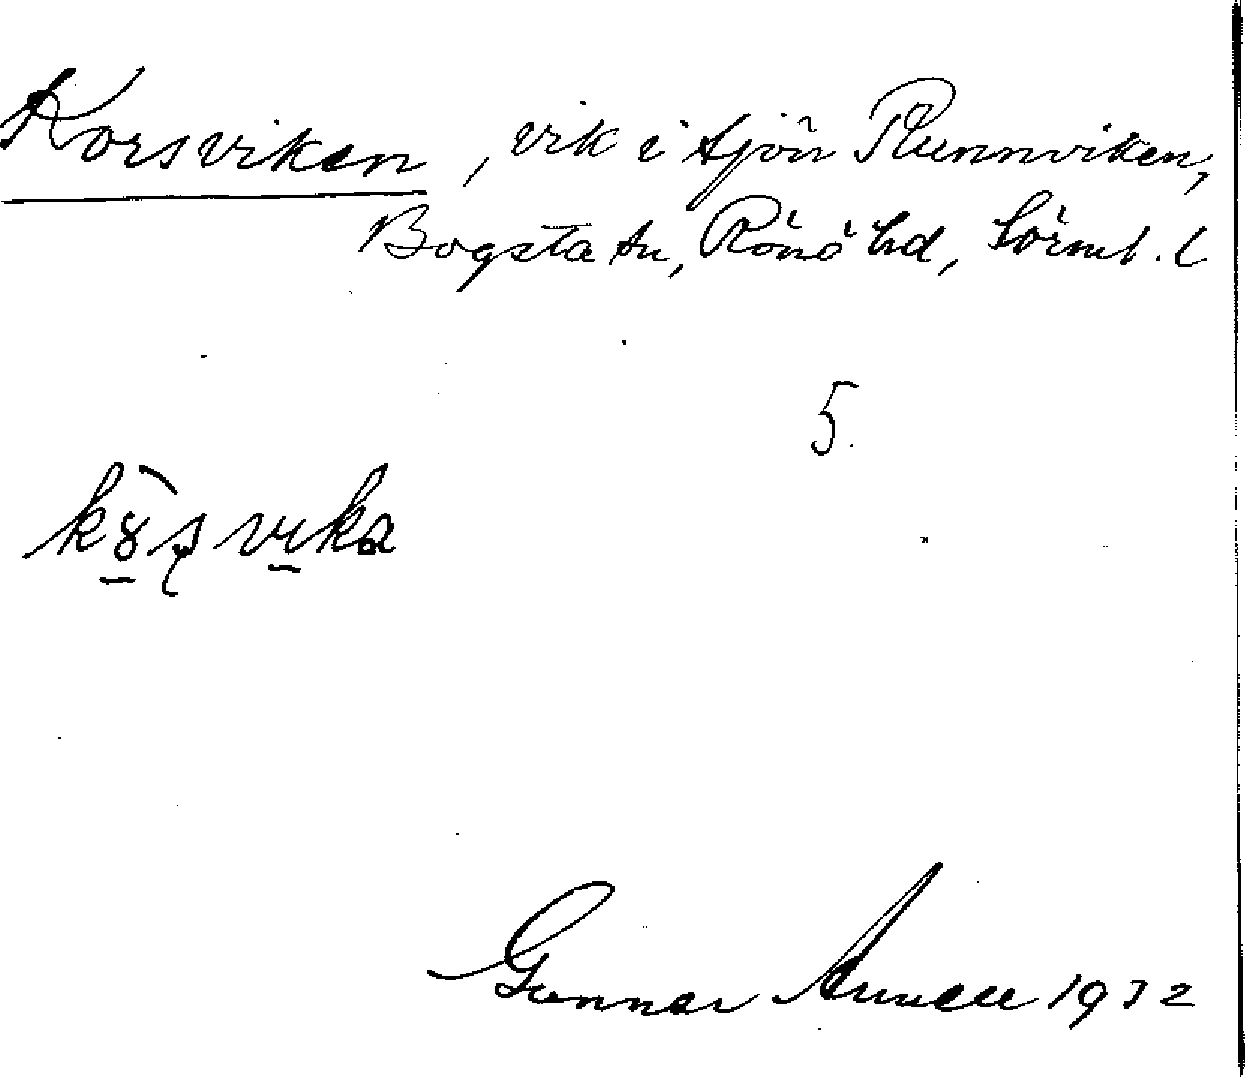 Korsviken, vik i sjön Runnviken,
Bogsta sn, Rönö hd, Sörml. l
5.
Gunnar 1932